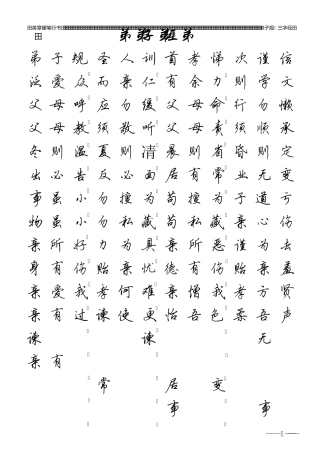 田英章硬笔行书
弟子规）三字经田
田
弟子规圣人训首孝悌次谨信
泛爱众而亲仁有余力则学文
父母呼应勿缓父母命行勿懒
父母教须敬听父母责须顺承
冬则温夏则清晨则省昏则定
出必告反必面居有常业无变
事虽小勿擅为苟擅为子道亏
物虽小勿私藏苟私藏亲心伤
亲所好力为具亲所恶谨为去
身有伤贻亲忧德有伤贻亲羞
亲爱我孝何难亲憎我孝方贤
亲有过谏使更怡吾色柔吾声
谏 谏 无
亲有
常 居 变
事 事